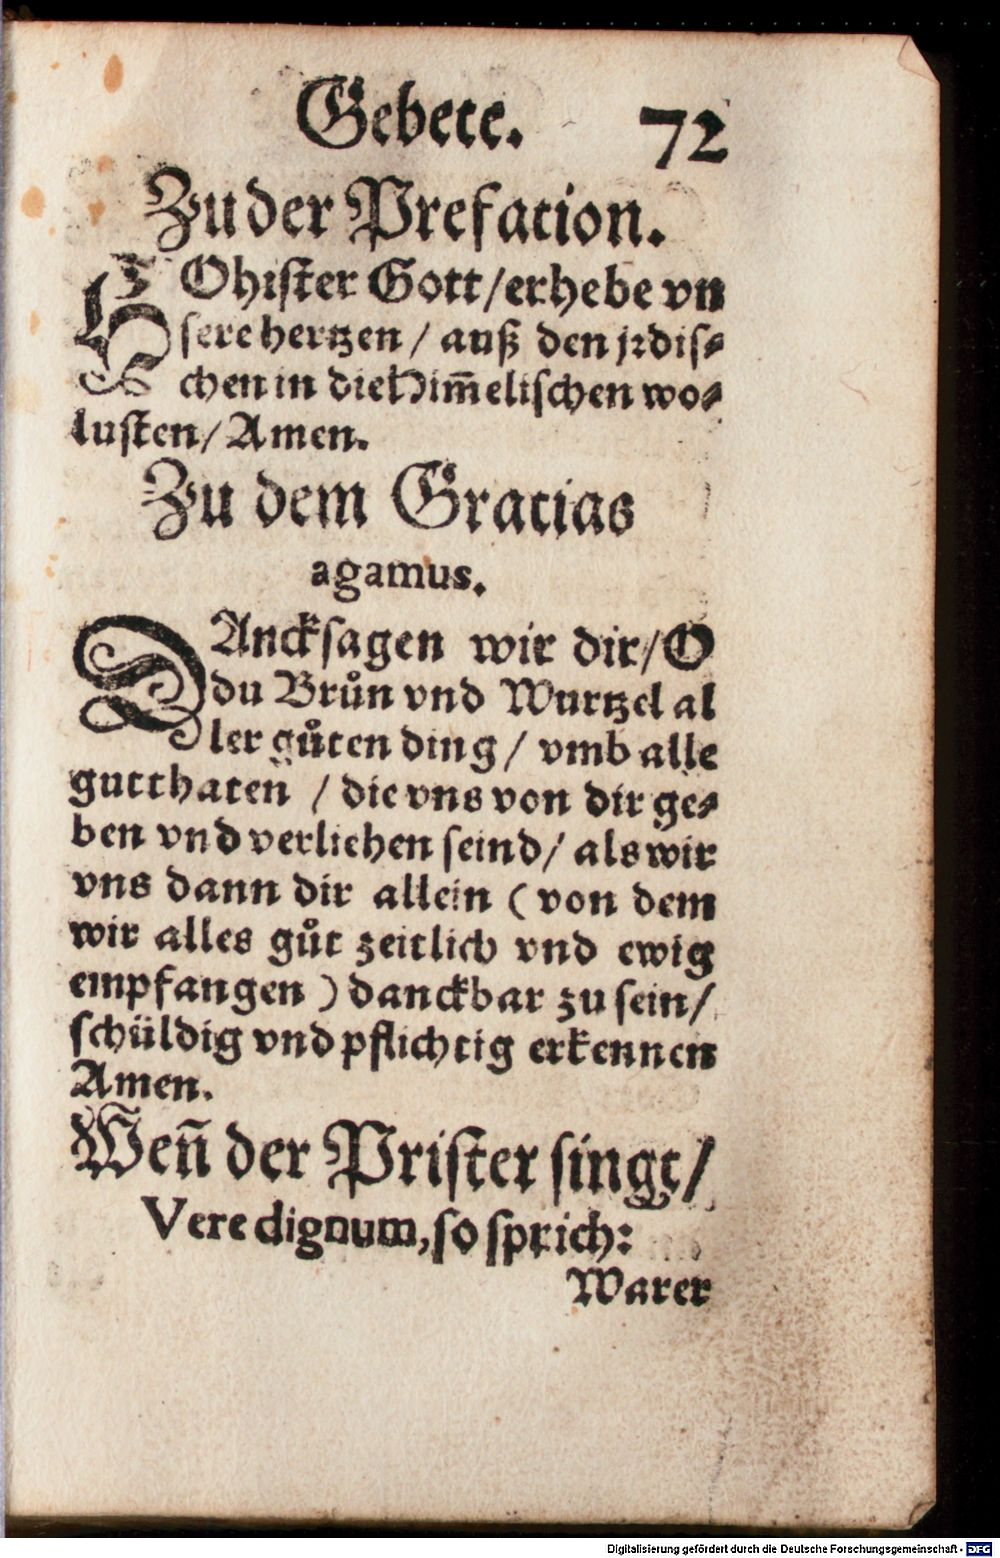 Gebete. 72
Zu der Prefation.
HOhister Gott / erhebe vn
sere hertzen / auß den jrdis⸗
chen in die Him̃elischen wo⸗
lusten / Amen.
Zu dem Gratias
agamus.
DAncksagen wir dir / O
du Brůn vnd Wurtzel al
ler gůten ding / vmb alle
gutthaten / die vns von dir ge⸗
ben vnd verliehen seind / als wir
vns dann dir allein ( von dem
wir alles gůt zeitlich vnd ewig
empfangen ) danckbar zu sein /
schüldig vnd pflichtig erkennen
Amen.
Weñ der Prister singt /
Vere dignum, so sprich:
Warer
Digitalisierung gefördert durch die Deutsche Forschungsgemeinschaft - DFG